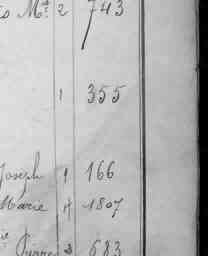 Md 2 743
1 355
Joseph 1 166
Marie 4 1807
Pierre 3 683